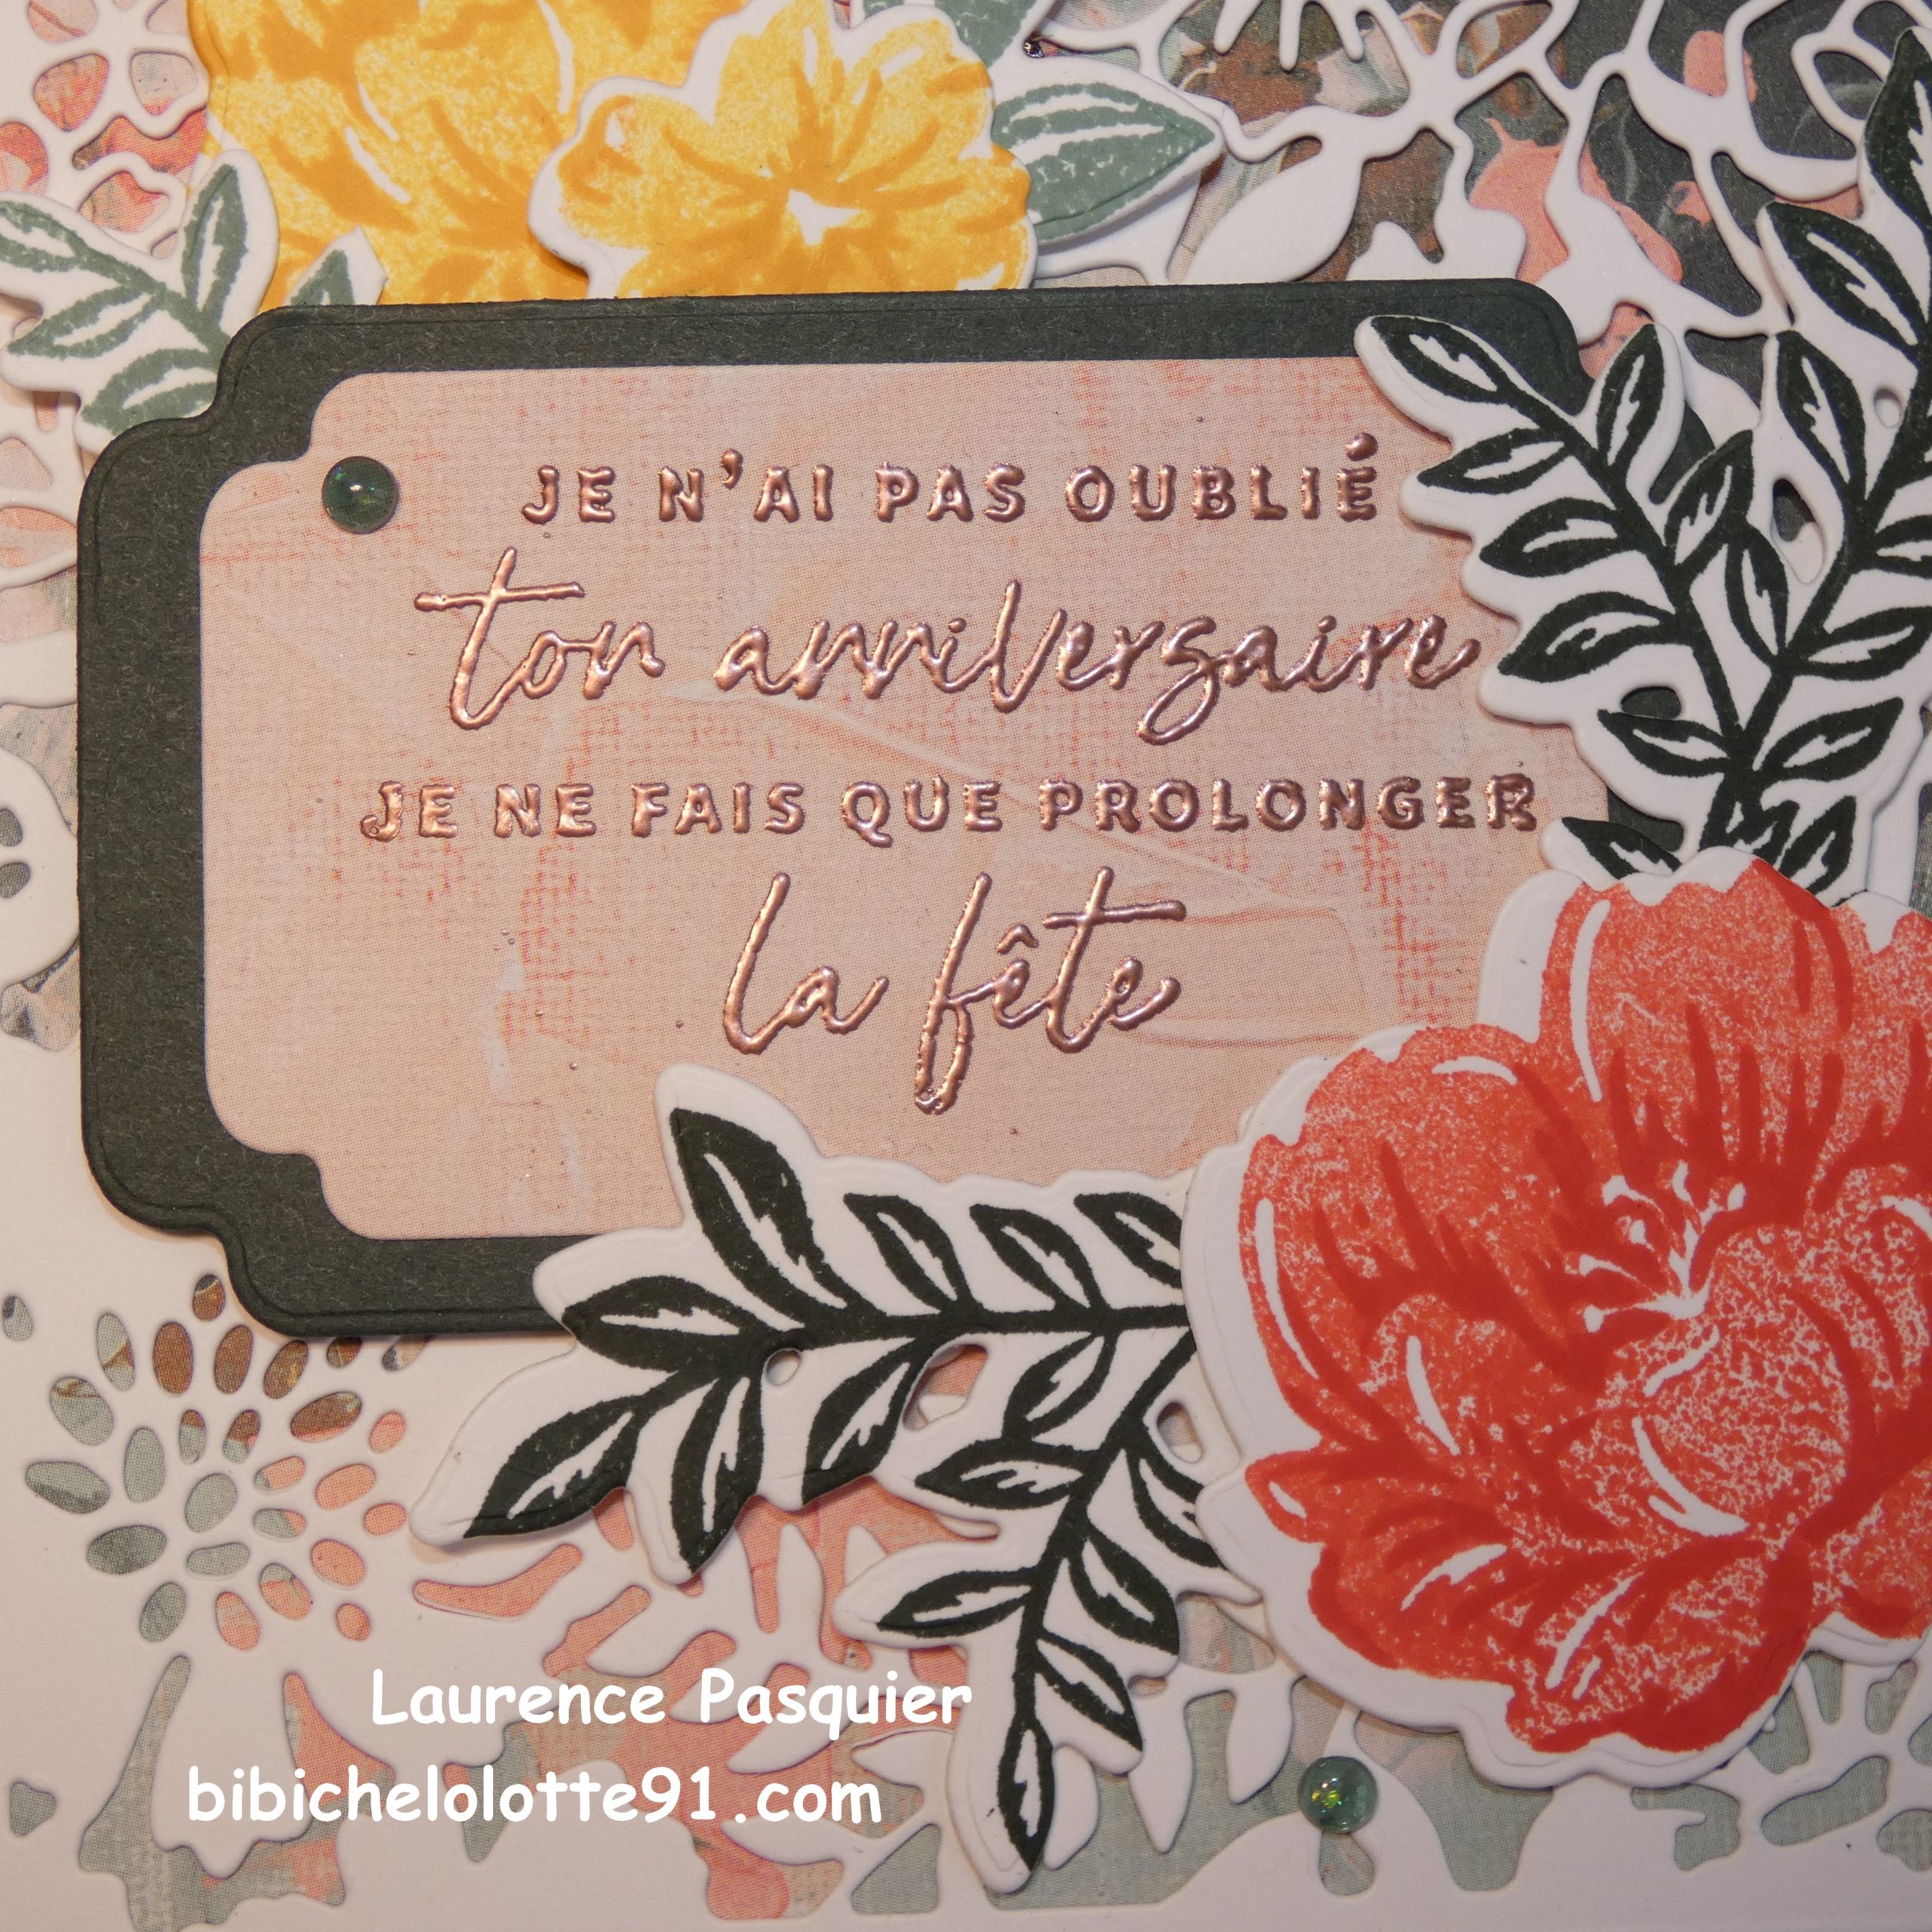 JE N'AI PAS OUBLIÉ
ton anniversaire
JE NE FAIS QUE PROLONGER
la fête
Laurence Pasquier
bibichelolotte91.com